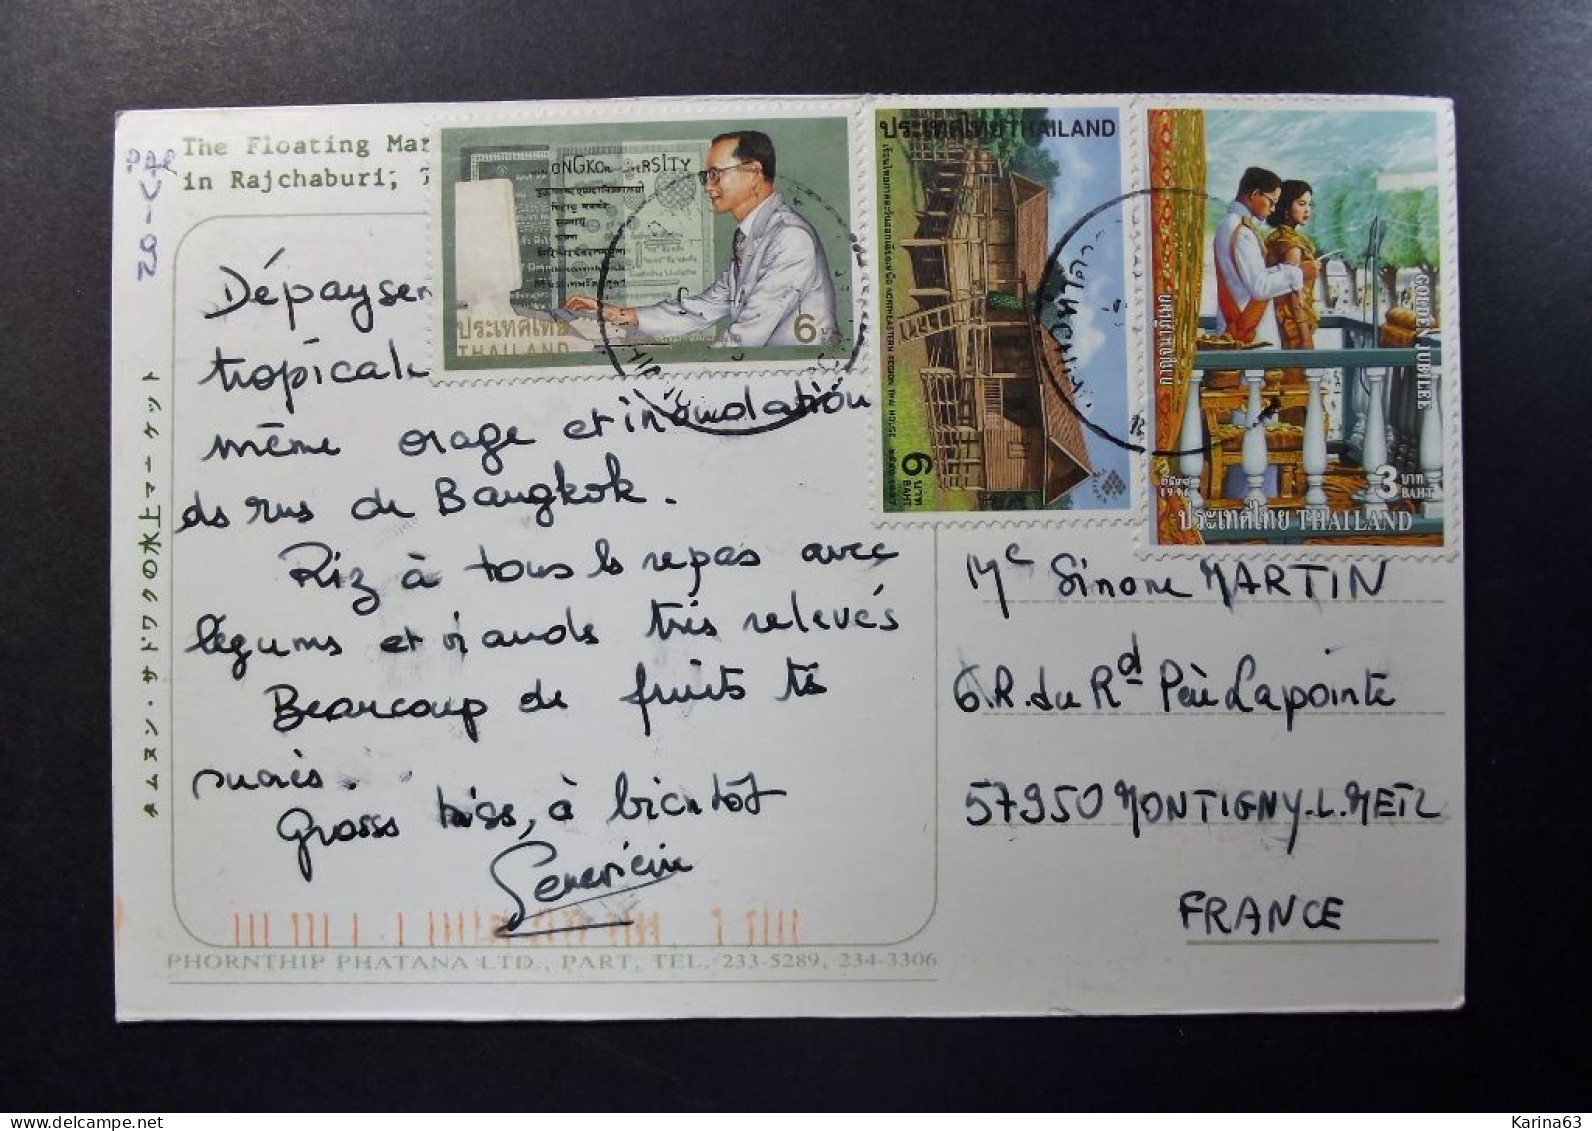 The Floating Mar
in Rajchaburi,
PAR
AVION
ダムヌン・サドワクの水上マーケット
Dépaysem
tropical
même orage et inondation
des rues de Bangkok.
Riz à tous les repas avec
légumes et viandes très relevés
Beaucoup de fruits très
sucrés.
Grosses bises, à bientôt
Geneviève
PHORNTHIP PHATANA LTD., PART, TEL. 233-5289, 234-3306
ประเทศไทย
THAILAND
6
ประเทศไทย THAILAND
NORTHEASTERN REGION THAI HOUSE
6 บาท
BAHT
GOLDEN JUBILEE
กาญจนาภิเษก
1996
3 บาท
BAHT
ประเทศไทย THAILAND
Me Simone MARTIN
6.R. du Rd Père Lapointe
57950 MONTIGNY-L-METZ
FRANCE
www.delcampe.net
Karina63